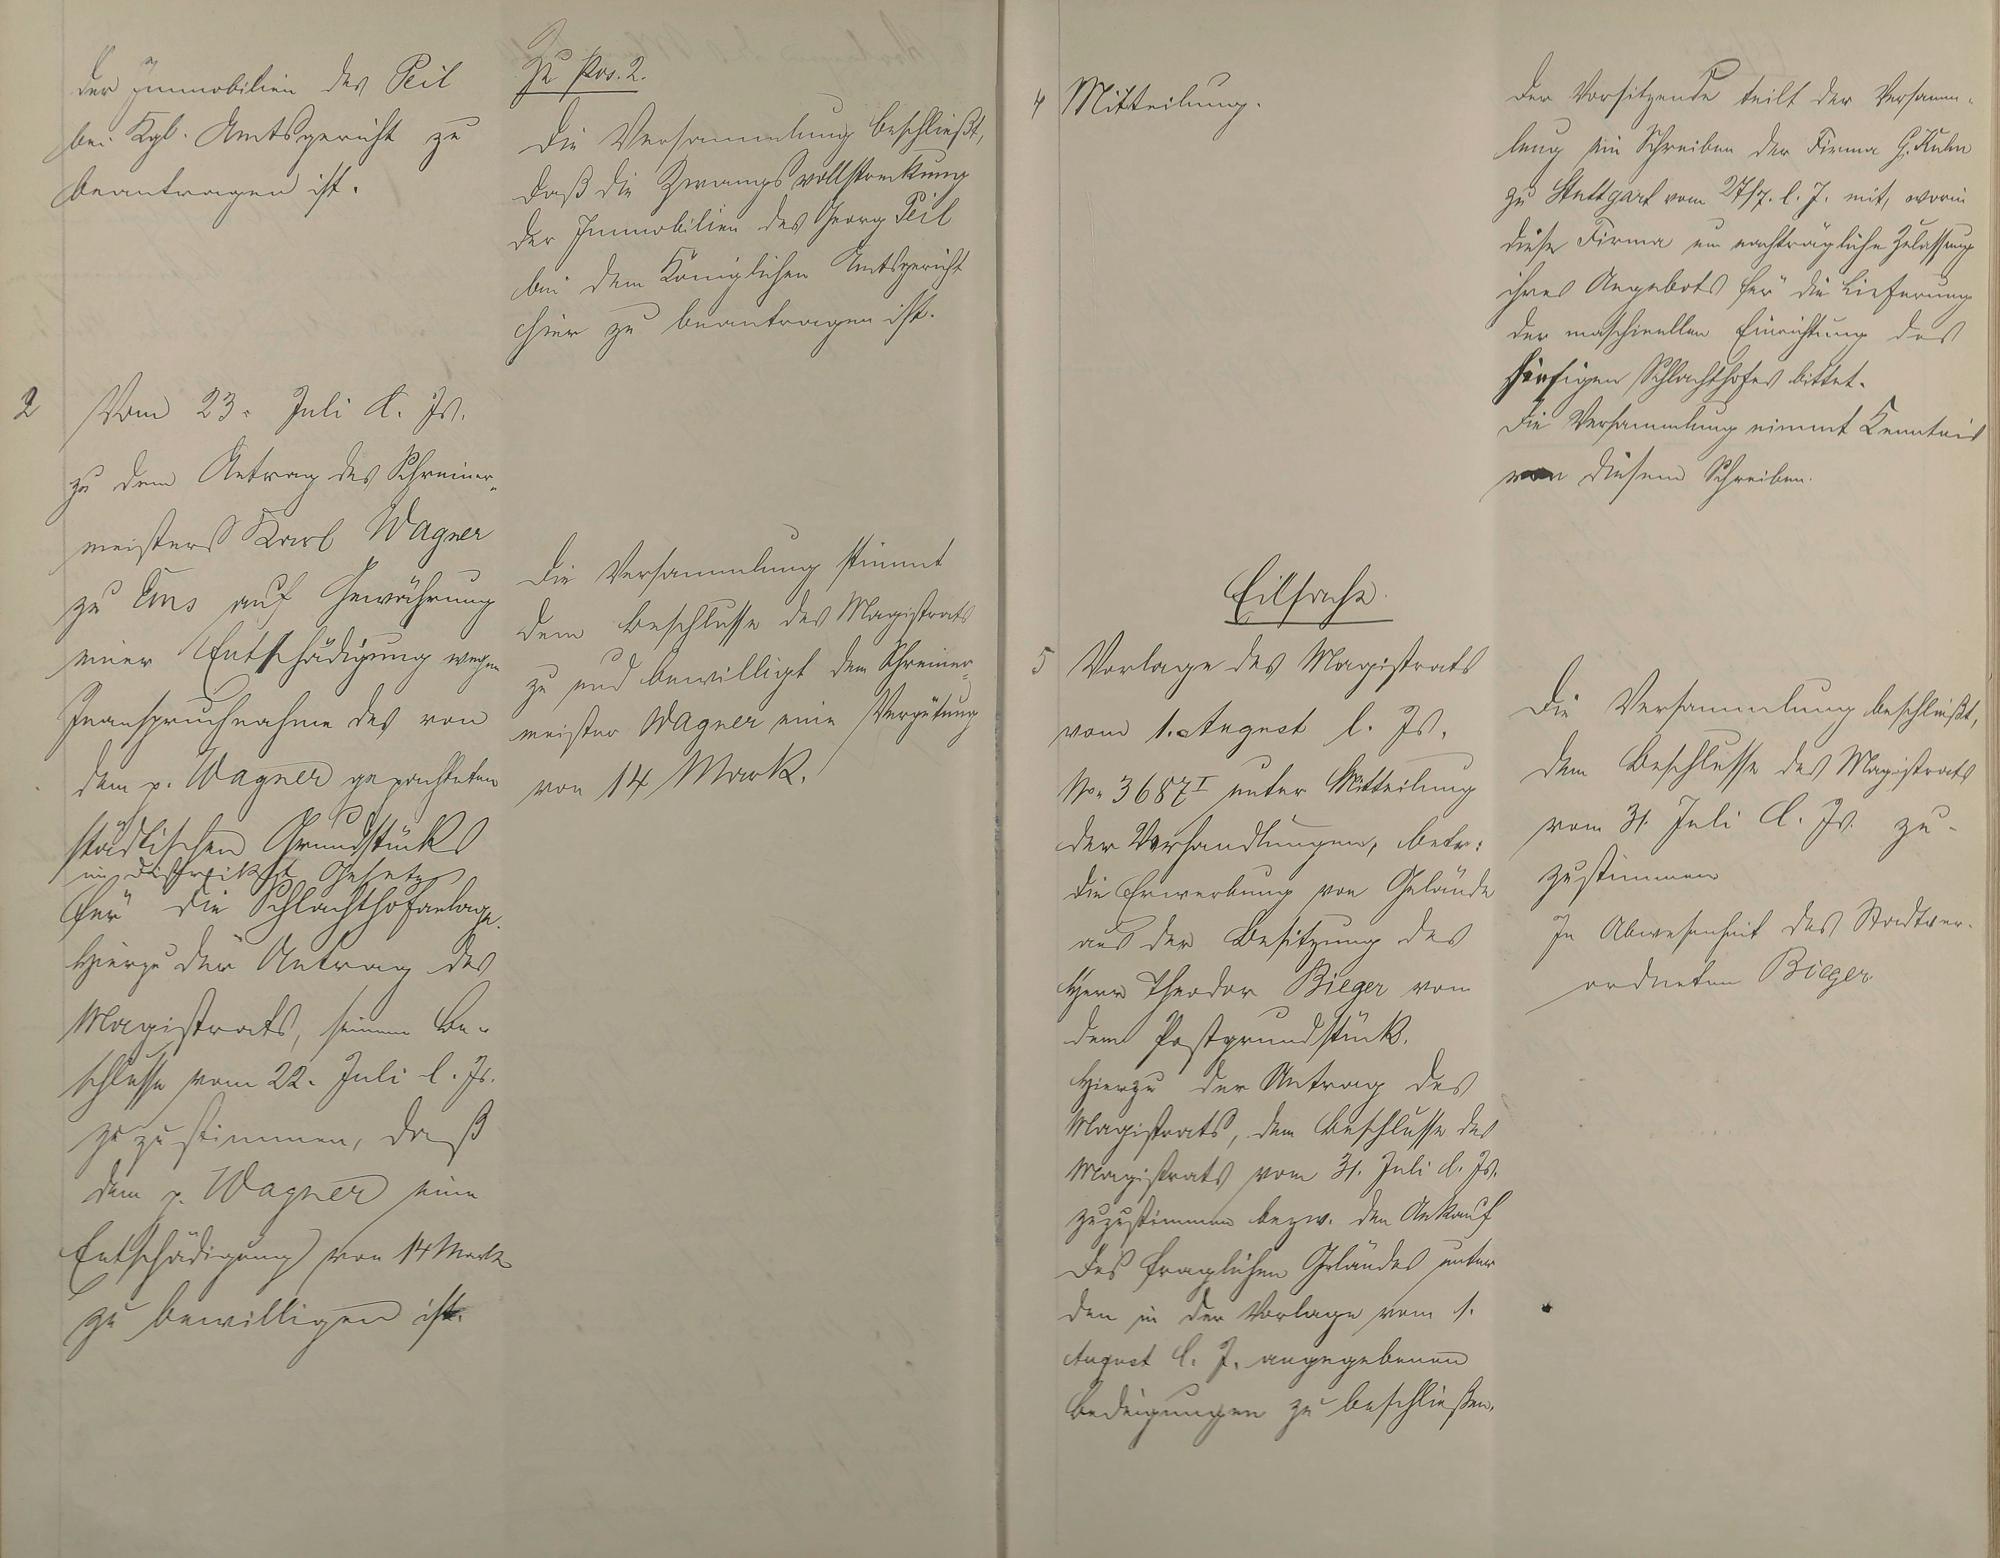 der Immobilien des Peil
bei Kgl. Amtsgericht zu
beantragen ist.
Zu Pos. 2.
Die Versammlung beschließt,
daß die Zwangsvollstreckung
der Immobilien des Georg Peil
bei dem Königlichen Amtsgericht
hier zu beantragen ist.
2 Vom 23. Juli l. Js.
zu dem Antrag des Schreiner-
meisters Karl Wagner
zu Ems auf Gewährung
einer Entschädigung wegen
Inanspruchnahme des von
dem p. Wagner gepachteten
städtischen Grundstücks
im Distrikt
für die Schlachthofanlage.
Hierzu der Antrag des
Magistrats, seinem Be-
schlusse vom 22. Juli l. Js.
zuzustimmen, daß
dem p. Wagner eine
Entschädigung von 14 Mark
zu bewilligen ist.
Die Versammlung stimmt
dem Beschlusse des Magistrats
zu und bewilligt dem Schreiner-
meister Wagner eine Vergütung
von 14 Mark.
4 Mitteilung.
Der Vorsitzende teilt der Versamm-
lung ein Schreiben der Firma G. Kuhn
zu Stuttgart vom 27/7. l. J. mit, worin
diese Firma um nachträgliche Zulassung
ihres Angebots für die Lieferung
der maschinellen Einrichtung des
hiesigen Schlachthofes bittet.
Die Versammlung nimmt Kenntnis
von diesem Schreiben.
Eilsache.
5 Vorlage des Magistrats
vom 1. August l. Js.
No. 3687 I unter Mitteilung
der Verhandlungen, betr.
die Erwerbung von Gelände
aus der Besitzung des
Herr Theodor Bieger von
dem Postgrundstück.
Hierzu der Antrag des
Magistrats, dem Beschlusse des
Magistrats vom 31. Juli l. Js.
zuzustimmen bezw. den Ankauf
des fraglichen Geländes unter
den in der Vorlage vom 1.
August l. J. angegebenen
Bedingungen zu beschließen.
Die Versammlung beschließt,
dem Beschlusse des Magistrats
vom 31. Juli l. Js. zu-
zustimmen
In Abwesenheit des Stadtver-
ordneten Bieger